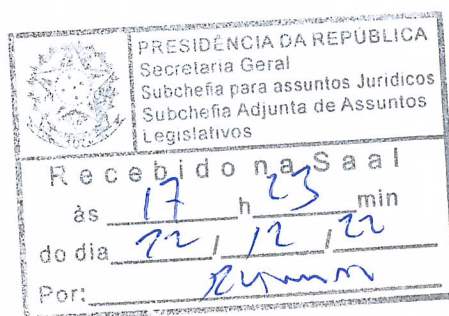 PRESIDÊNCIA DA REPÚBLICA
Secretaria Geral
Subchefia para assuntos Jurídicos
Subchefia Adjunta de Assuntos
Legislativos
Recebido na Saal
às 17 h 23 min
do dia 22 / 12 / 22
Por: